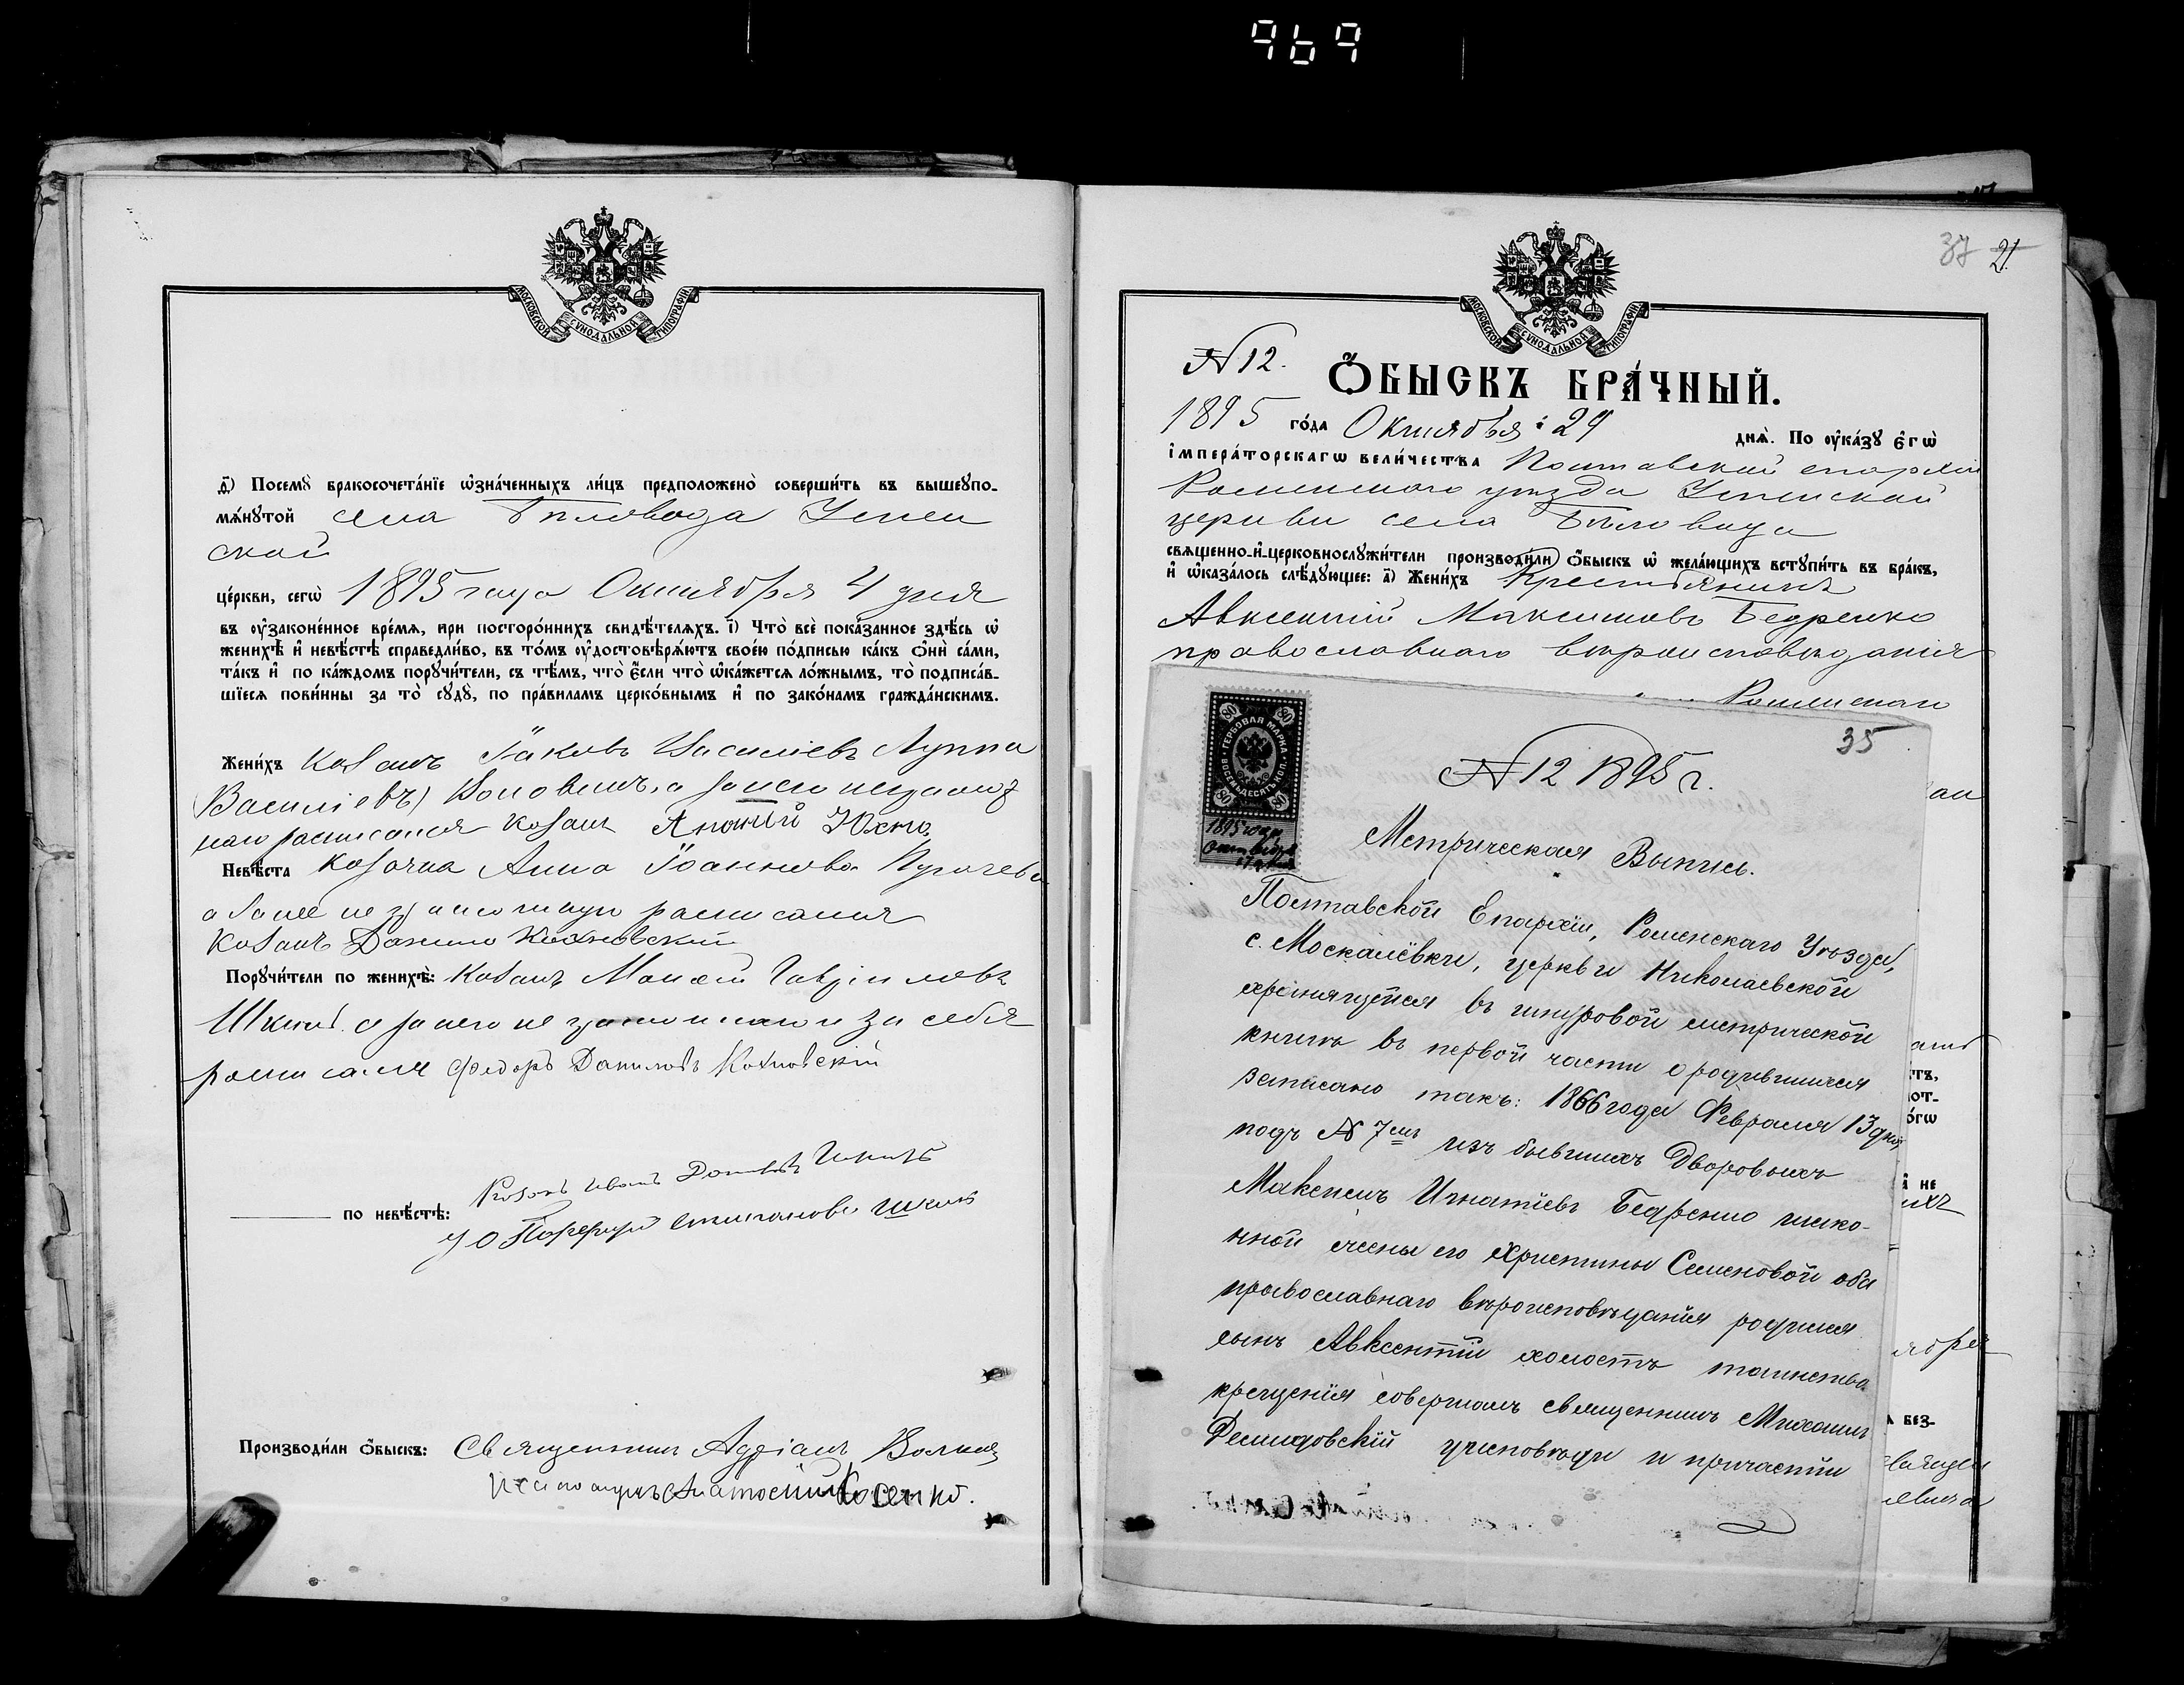 969
МОСКОВСКОЙ СѴНОДАЛЬНОЙ ТИПОГРАФІИ
д҃) Посемꙋ бракосочета́нїе ѡ҆зна́ченныхъ ли́цъ предположено̀ соверши́ть въ вышеꙋпо-
мѧ́нꙋтой села Бѣловода Успен
ской
це́ркви, сегѡ̀ 1895 года Октября 4 дня
въ ᲂу҆законе́нное вре́мѧ, при посторо́ннихъ свидѣ́телѧхъ. і҃) Что̀ всѐ пока́занное здѣ́сь ѡ҆
женихѣ̀ и҆ невѣ́стѣ справедли́во, въ то́мъ ᲂу҆достовѣрѧ́ютъ свое́ю по́дписью ка́къ ѻ҆нѝ са́ми,
та́къ и҆ по ка́ждомъ порꙋчи́тели, съ тѣ́мъ, что̀ є҆́сли что̀ ѡ҆ка́жетсѧ ло́жнымъ, то̀ подписа́в-
шїесѧ пови́нны за то̀ сꙋдꙋ̀, по пра́виламъ церко́внымъ и҆ по зако́намъ гражда́нскимъ.
Жени́хъ Козакъ Іаковъ Василіевъ Луппа
(Василіевъ) а за него неграмот
наго расписался козакъ Юхно
Невѣ́ста козачка Анна Іоаннова Пугачева
а за нее неграмотную расписался
козакъ Данило Кохновскій
Порꙋчи́тели по женихѣ̀: козакъ Гавриловъ
Шкиль а за него неграмотнаго и за себя
росписался Федоръ Даниловъ Кохновскій
по невѣ́стѣ: Козакъ Иванъ Шкиль
Порфирій Степановъ Шкиль
Производи́ли ѻ҆́быскъ: Священникъ Адріанъ
Косенко.
37 21
МОСКОВСКОЙ СѴНОДАЛЬНОЙ ТИПОГРАФІИ
N 12.
Ѻ҆́БЫСКЪ БРА́ЧНЫЙ.
1895 го́да Октября 29 днѧ̀. По ᲂу҆ка́зꙋ є҆гѡ̀
і҆мпера́торскагѡ вели́чества Полтавской епархіи
Роменскаго уѣзда Успенской
церкви села Бѣловода
свѧще́нно-и҆-церковнослꙋжи́тели производи́ли ѻ҆́быскъ ѡ҆ жела́ющихъ встꙋпи́ть въ бра́къ,
и҆ ѡ҆каза́лось слѣ́дꙋющее: а҃) Жени́хъ Крестьянинъ
Авксентій Максимовъ Бедренко
православнаго вѣроисповѣданія
Роменскаго
35
ГЕРБОВАЯ МАРКА ВОСЕМЬДЕСЯТЪ КОП.
80 80 80 80
1895 года
Октября
17 дня
N 12 1895 г.
Метрическая Выпись.
Полтавской Епархіи, Роменскаго Уѣзда,
с. Москалёвки, церкви Николаевской
хранящейся въ шнуровой метрической
книгѣ въ первой части о родившихся
записано такъ: 1866 года Февраля 13 дня,
подъ N 7мъ изъ бывшихъ дворовыхъ
Максимъ Игнатіевъ Бедренко и зако-
нной жены его Христины Семеновой оба
православнаго вѣроисповѣданія родился
сынъ Авксентій холостъ таинство
крещенія совершалъ священникъ Михаилъ
Демидовскій у исповѣди и причастіи
ябра
без-